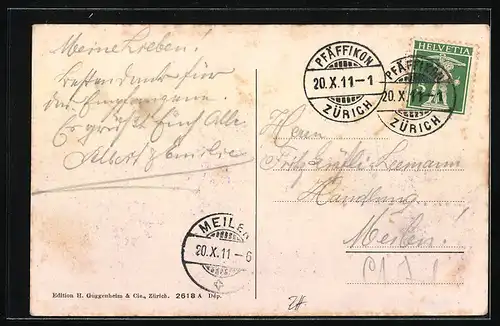 Meine Lieben!
besten dank für
das Empfangene.
Es grüsst Euch Alle
Albert & Familie
PFÄFFIKON
20.X.11-1
ZÜRICH
HELVETIA
5
PFÄFFIKON
20.X.11
ZÜRICH
Herrn
Fritz Leemann
Handlung
Meilen!
MEILEN
20.X.11-6
Edition H. Guggenheim & Cie., Zürich. 2618 A Dép.